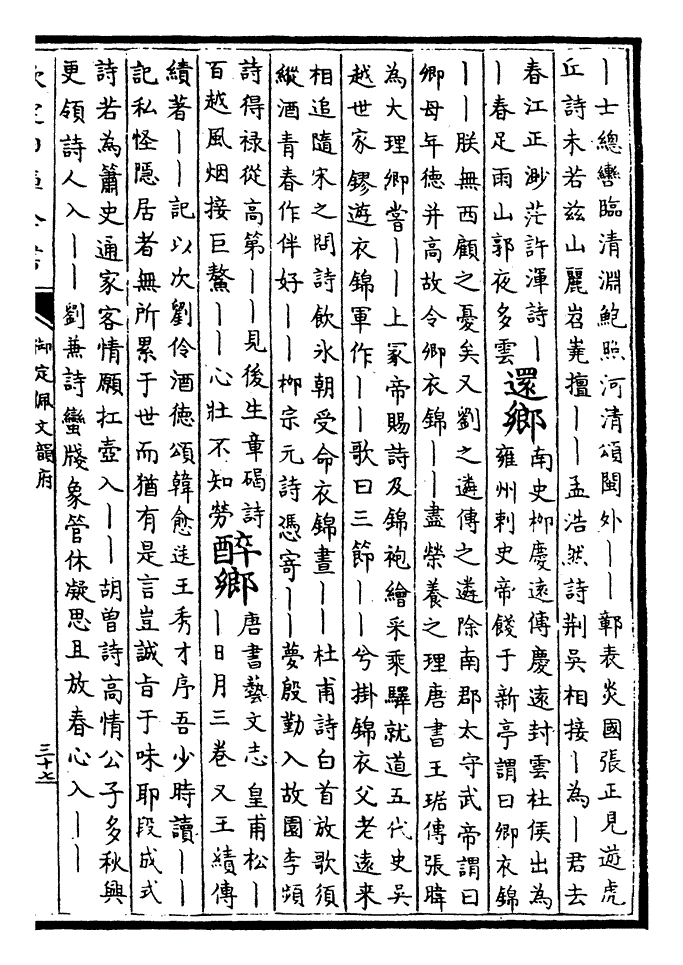 ｜士總轡臨清淵鮑照河清頌閩外｜｜鄣表炎國張正見遊虎
丘詩未若茲山麗岧嶤擅｜｜孟浩然詩荆吳相接｜為｜君去
春江正渺茫許渾詩｜
｜春足雨山郭夜多雲
還鄉
南史柳慶遠傳慶遠封雲杜侯出為
雍州刺史帝餞于新亭謂曰卿衣錦
｜｜朕無西顧之憂矣又劉之遴傳之遴除南郡太守武帝謂曰
卿母年德并高故令卿衣錦｜｜盡榮養之理唐書王琚傳張暐
為大理卿嘗｜｜上冢帝賜詩及錦袍繒采乘驛就道五代史吳
越世家鏐遊衣錦軍作｜｜歌曰三節｜｜兮掛錦衣父老遠來
相追隨宋之問詩飲氷朝受命衣錦晝｜｜杜甫詩白首放歌須
縱酒青春作伴好｜｜柳宗元詩憑寄｜｜夢殷勤入故園李頻
詩得禄從高第｜｜見後生章碣詩
百越風烟接巨鰲｜｜心壯不知勞
醉鄉
唐書藝文志皇甫松｜
｜日月三卷又王績傳
績著｜｜記以次劉伶酒德頌韓愈送王秀才序吾少時讀｜｜
記私怪隱居者無所累于世而猶有是言豈誠旨于味耶段成式
詩若為簫史通家客情願扛壺入｜｜胡曾詩高情公子多秋興
更領詩人入｜｜劉兼詩蠻牋象管休凝思且放春心入｜｜
欽定四庫全書
御定佩文韻府
三十七